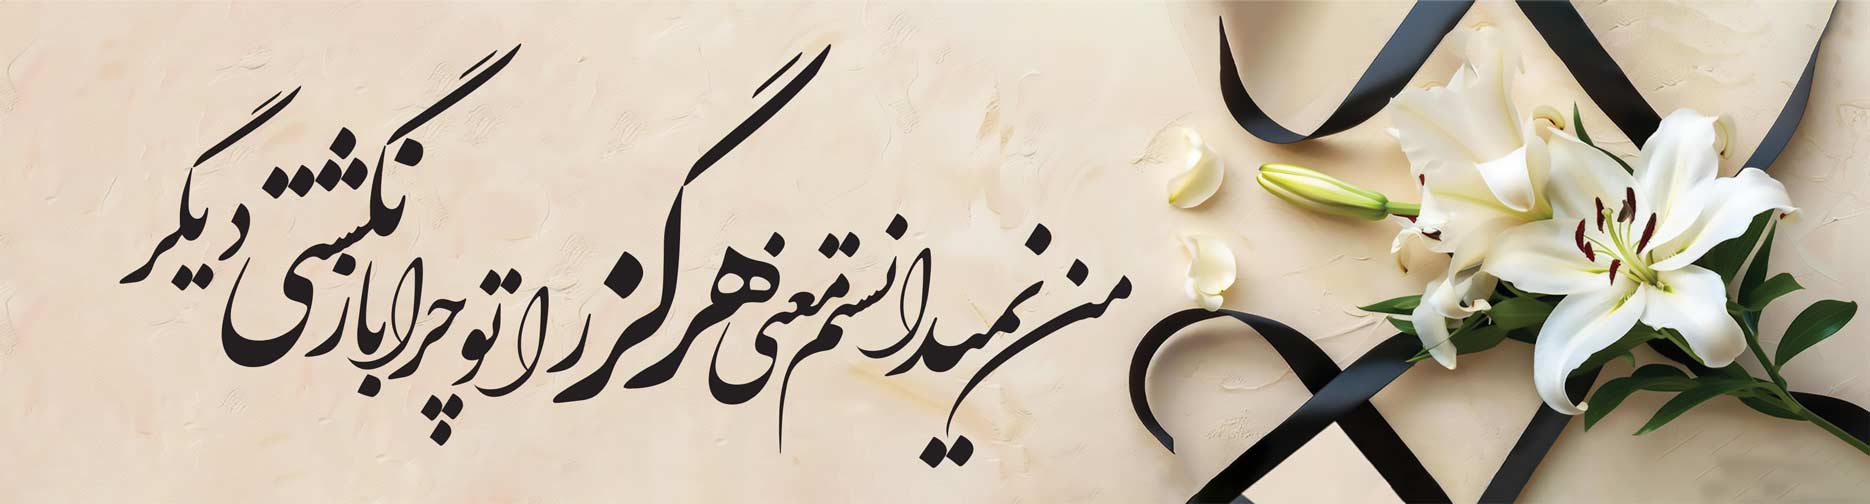 من نمیدانستم معنی هرگز را تو چرا بازنگشتی دیگر